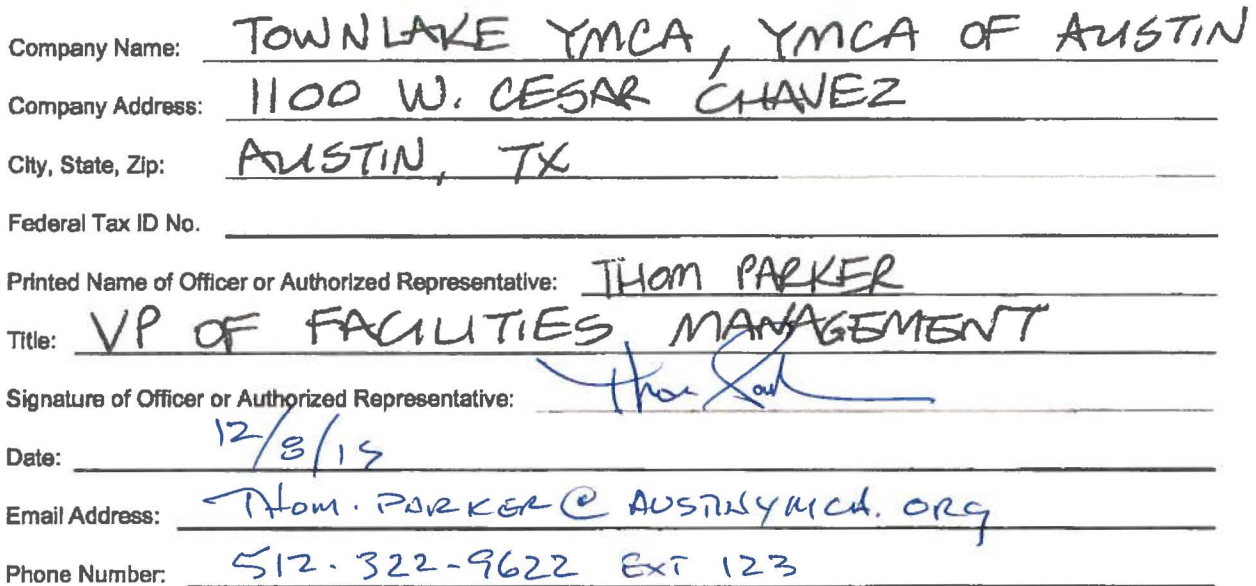 Company Name: TOWNLAKE YMCA, YMCA OF AUSTIN
Company Address: 1100 W. CESAR CHAVEZ
City, State, Zip: AUSTIN, TX
Federal Tax ID No.
Printed Name of Officer or Authorized Representative: THOM PARKER
Title: VP OF FACILITIES MANAGEMENT
Signature of Officer or Authorized Representative: Thom Park
Date: 12/8/15
Email Address: THOM.PARKER@AUSTINYMCA.ORG
Phone Number: 512-322-9622 EXT 123